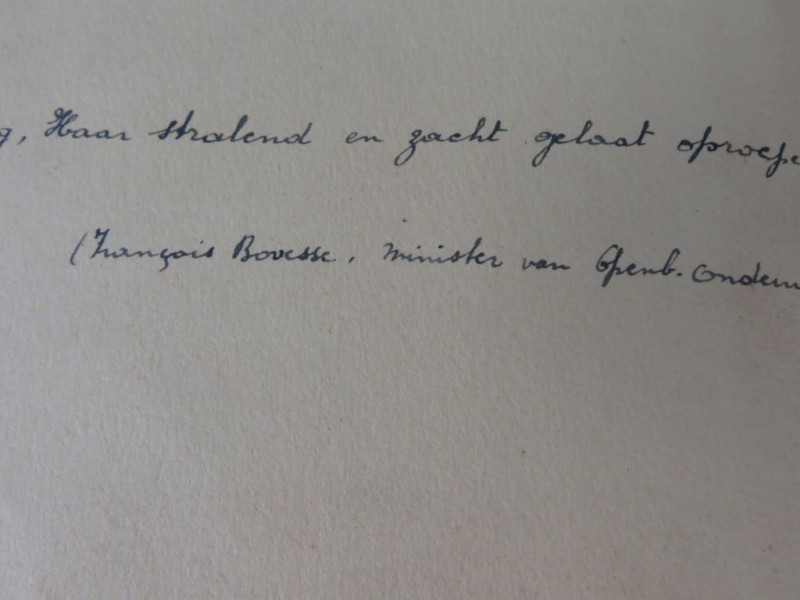 g, Haar stralend en zacht gelaat oproepe
(François Bovesse, minister van Openb. Onderw